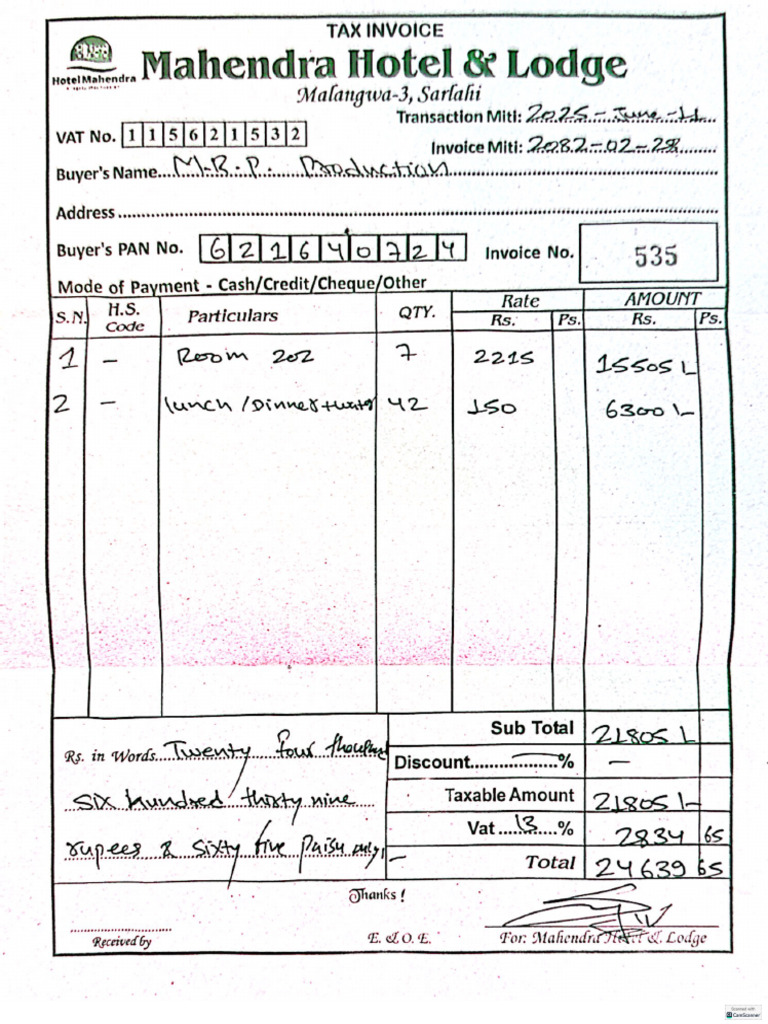 TAX INVOICE
Hotel Mahendra
Mahendra Hotel & Lodge
Malangwa-3, Sarlahi
Transaction Miti: 2025-June-11
VAT No. 115621532
Invoice Miti: 2082-02-28
Buyer's Name M.R.P. Production
Address
Buyer's PAN No. 621640724 Invoice No. 535
Mode of Payment - Cash/Credit/Cheque/Other
S.N. H.S. Code Particulars QTY. Rate Rs. Ps. AMOUNT Rs. Ps.
1 - Room 202 7 2215 15505 L
2 - Lunch /Dinner+water 42 150 6300 L
Sub Total 21805 L
Rs. in Words Twenty four thousand
Discount..................% -
six hundred thirty nine
Taxable Amount 21805 L
Vat 13 % 2834 65
rupees & sixty five paisa only,-
Total 24639 65
Thanks !
Received by E. & O. E. For: Mahendra Hotel & Lodge
Scanned with
CamScanner